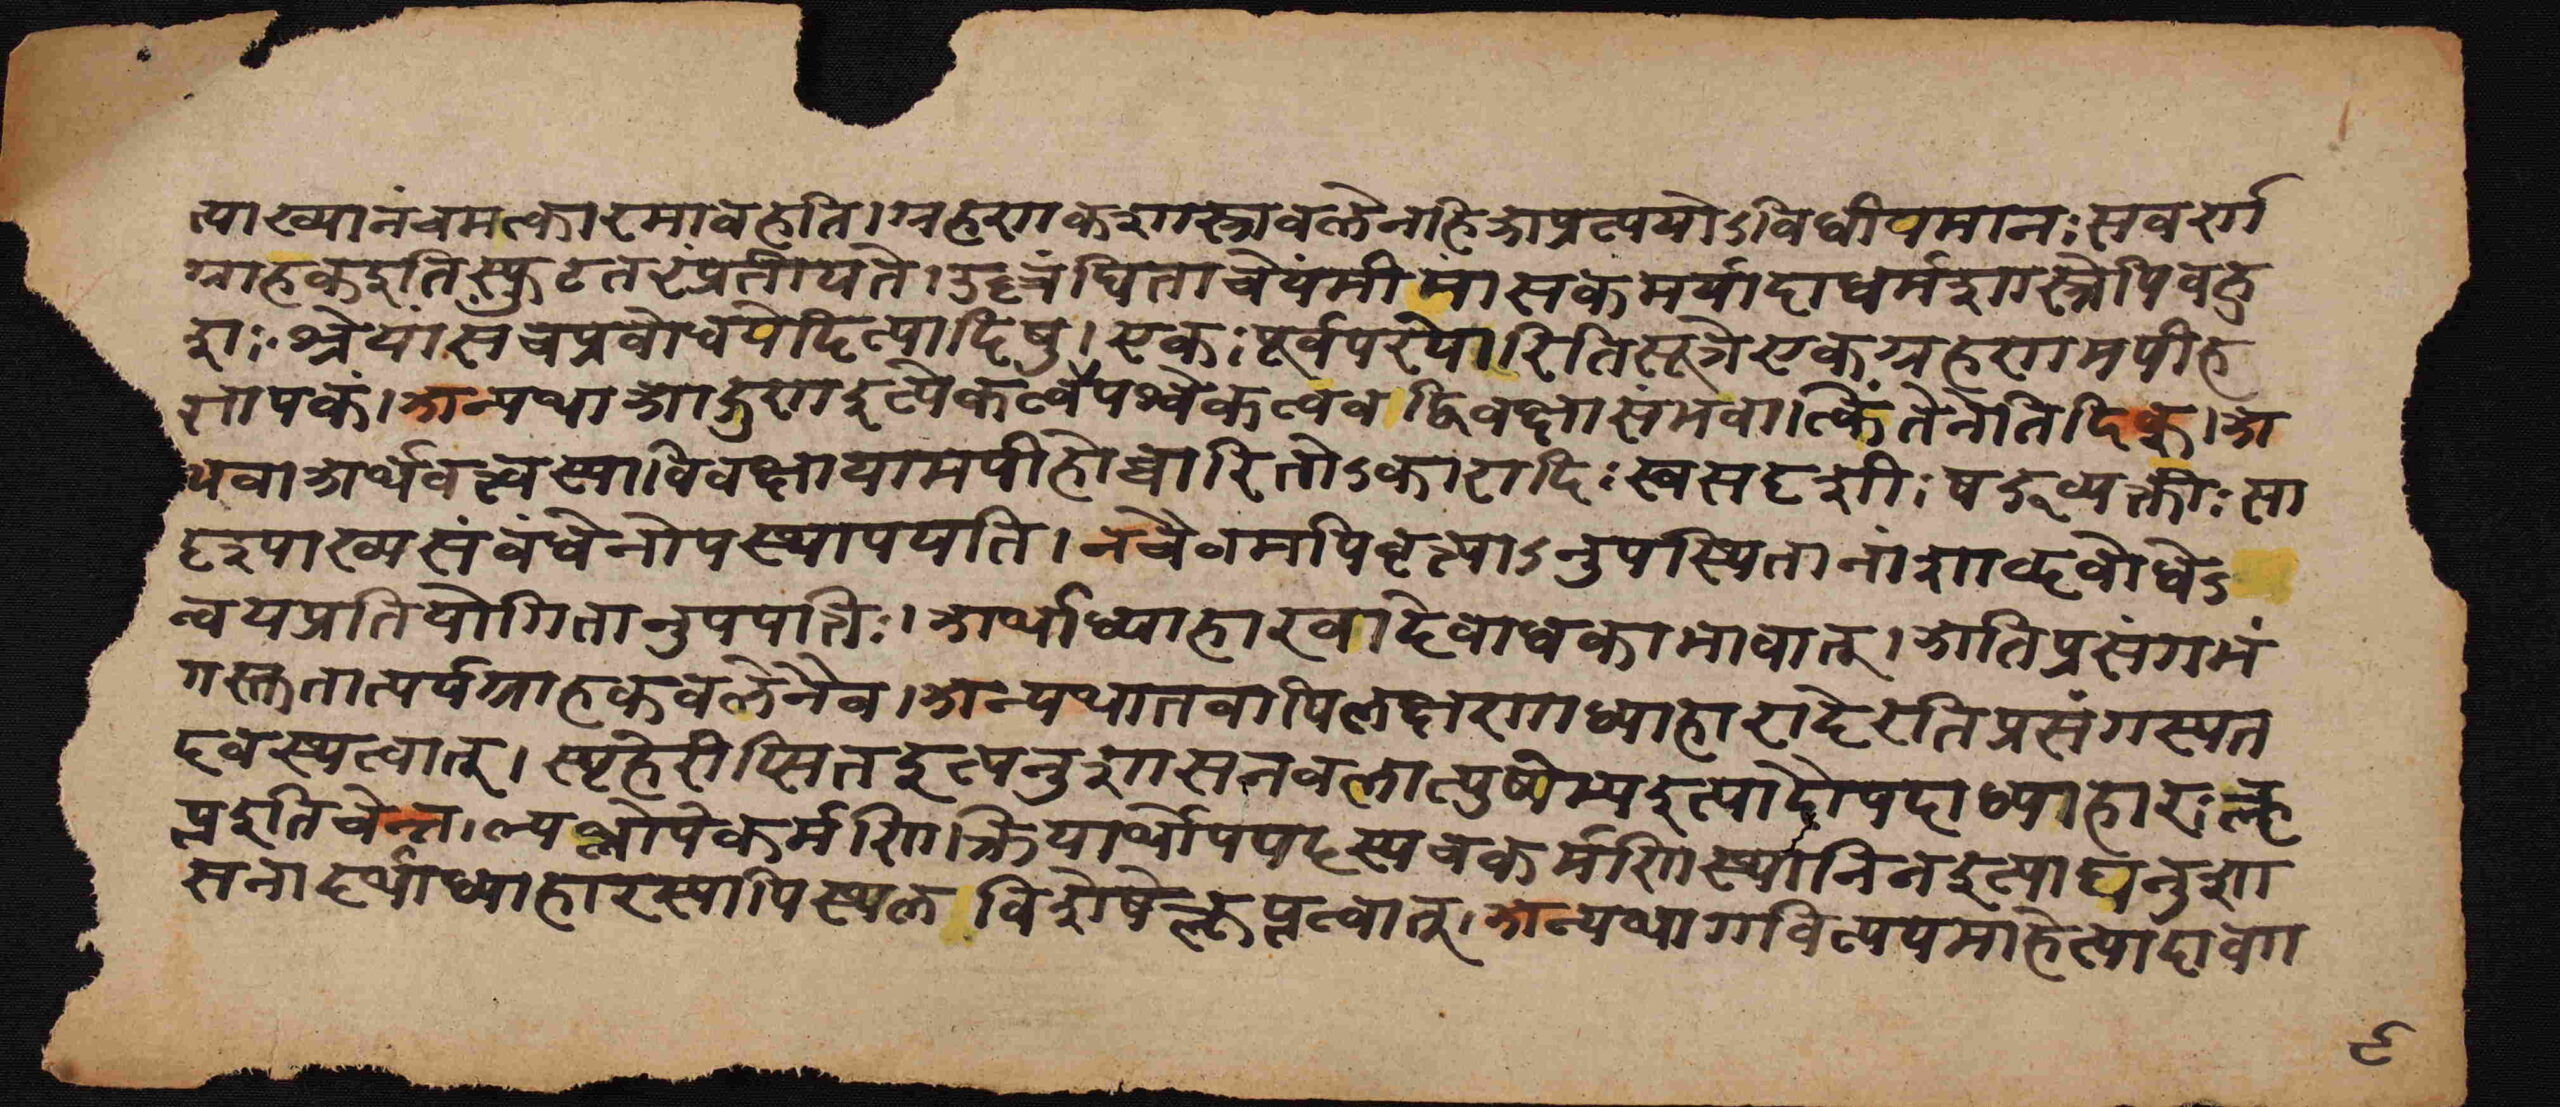 त्याख्यानंचमत्कारमावहति।ग्रहणकशास्त्रावलेनहिअप्रत्ययोऽविधीयमानःसवर्ण
ग्राहकइतिस्फुटतरंप्रतीयते।उल्लंघिताचेयंमीमांसकमर्यादाधर्मशास्त्रेपिवहु
शः।श्रेयांसंचप्रवोधयेदित्यादिषु।एकःपूर्वपरयोरितिसूत्रेएकग्रहणमपीह
ज्ञापकं।अन्यथाआद्गुणइत्येकत्वेपश्वेकत्ववद्विवक्षासंभवात्किंतेनेतिदिक्।अ
थवाअर्थवत्त्वस्याविवक्षायामपीहोच्चारितोऽकारादिःस्वसदृशीःषड्व्यक्तीःसा
दृश्याख्यसंवंधेनोपस्थापयति।नचैवमपिवृत्त्याऽनुपस्थितानांशाव्दवोधेऽ
न्वयप्रतियोगितानुपपत्तिः।अर्थाध्याहारवादेवाधकाभावात्।अतिप्रसंगभं
गस्तुतात्पर्यग्राहकवलेनैव।अन्यथातवापिलक्षणाध्याहारादेरतिप्रसंगस्यत
दवस्थत्वात्।स्पृहेरीप्सितइत्यनुशासनवलात्पुष्पेभ्यइत्यादौपदाध्याहारःक्लृ
प्तइतिचेन्न।ल्यब्लोपेकर्मणि।क्रियार्थोपपदस्यचकर्मणिस्थानिनइत्याद्यनुशा
सनादर्थाध्याहारस्यापिस्थलविशेषेक्लृप्तत्वात्।अन्यथागवित्ययमाहेत्यादावा
९